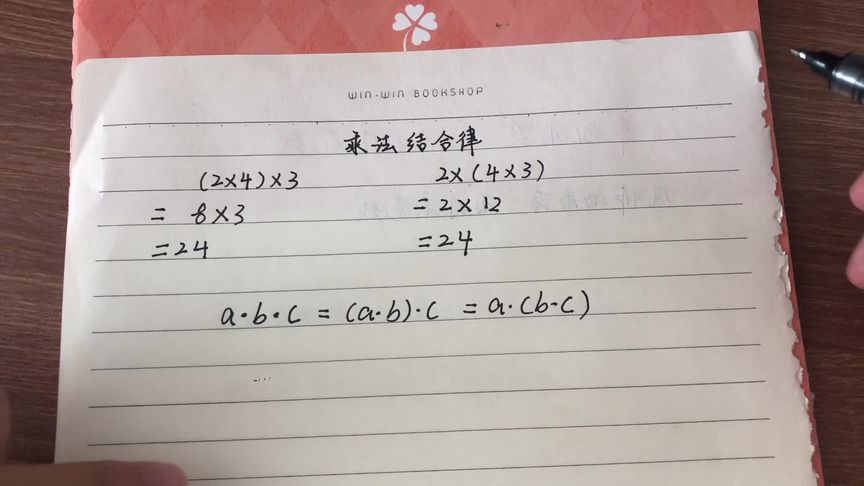 WIN-WIN BOOKSHOP
乘法结合律
(2×4)×3 2×(4×3)
= 8×3 = 2×12
=24 =24
a·b·c = (a·b)·c = a·(b·c)